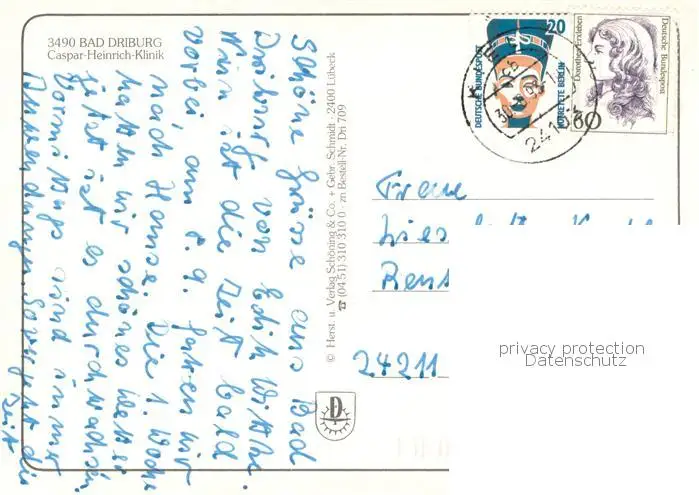 3490 BAD DRIBURG
Caspar-Heinrich-Klinik
Schöne Grüsse aus Bad
Driburg von Edith
Nun ist die Zeit bald
vorbei am 8.9. fahren wir
nach Hause. Die 1. Woche
hatten wir schönes Wetter
jetzt ist es durchwachsen
Vormittags sind immer
Anwendungen. So vergeht die
Zeit
© Herst. u. Verlag Schöning & Co. + Gebr. Schmidt · 2400 Lübeck
☎ (04 51) 310 310 0 · zn Bestell-Nr. Dri 709
DEUTSCHE BUNDESPOST
20
NOFRETETE BERLIN
Dorothea Erxleben
Deutsche Bundespost
60
Lies
Rens
24211
D
privacy protection
Datenschutz